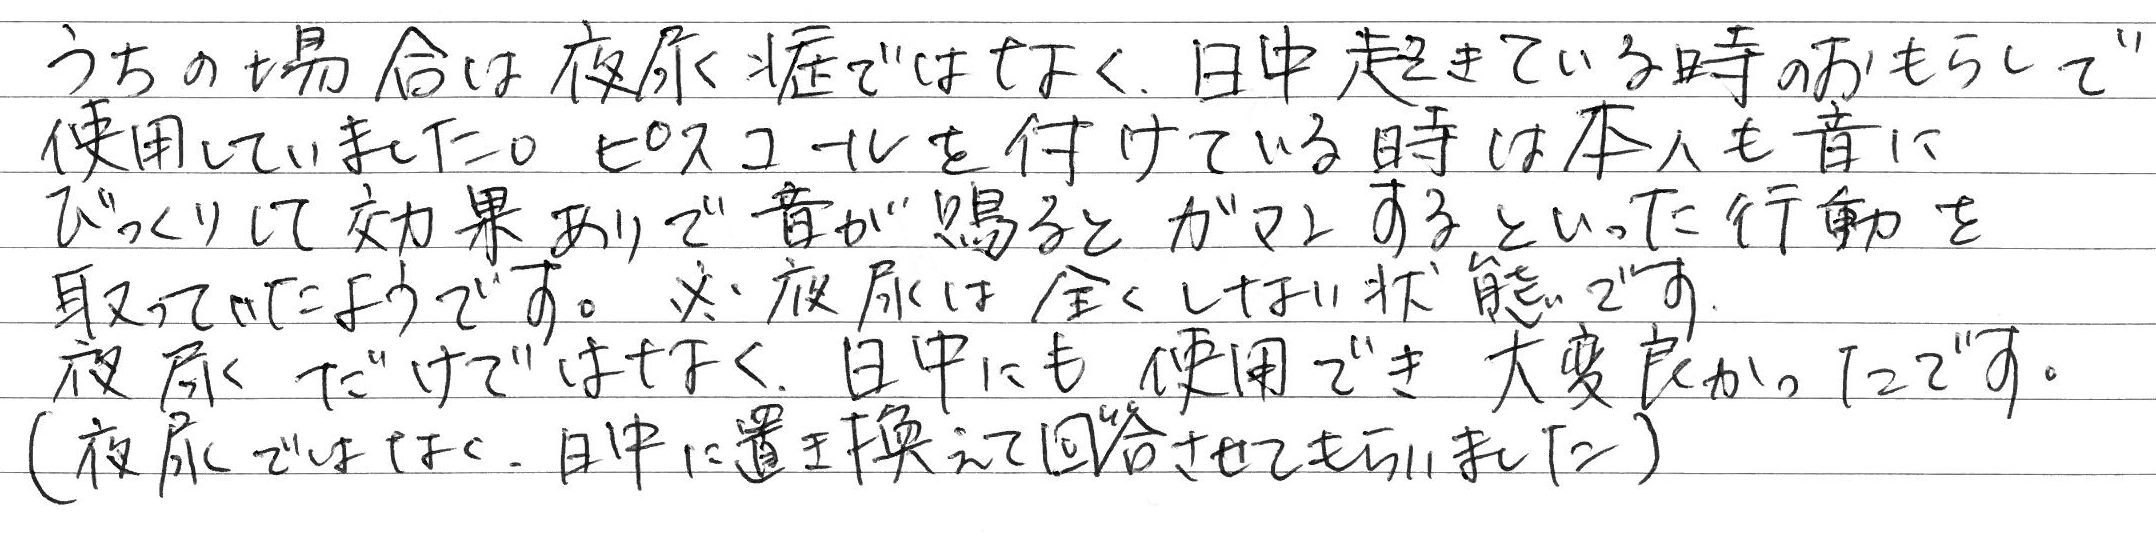 うちの場合は夜尿症ではなく、日中起きている時のおもらしで
使用していました。ピスコールを付けている時は本人も音に
びっくりして効果ありで音が鳴るとガマンするといった行動を
取っていたようです。※夜尿は全くしない状態です。
夜尿だけではなく、日中にも使用でき大変良かったです。
(夜尿ではなく、日中に置き換えて回答させてもらいました)